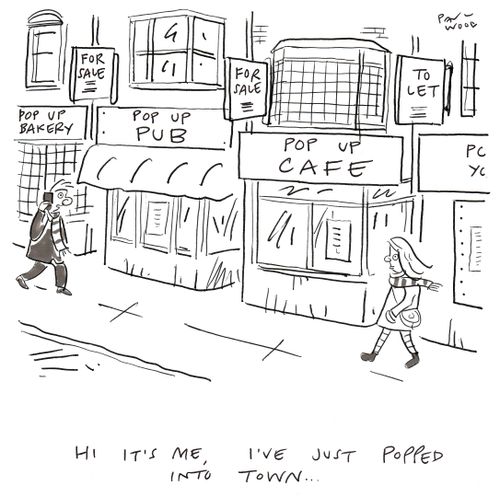 PAUL
WOOD
FOR
SALE
FOR
SALE
TO
LET
POP UP
BAKERY
POP UP
PUB
POP UP
CAFE
PO
YO
HI IT'S ME, I'VE JUST POPPED
INTO TOWN...